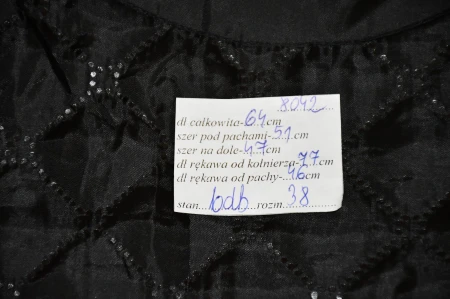 8.042
dł całkowita-64cm
szer pod pachami-51cm
szer na dole-47cm
dł rękawa od kołnierza-77
dł rękawa od pachy-46cm
stan...bdb...rozm.38